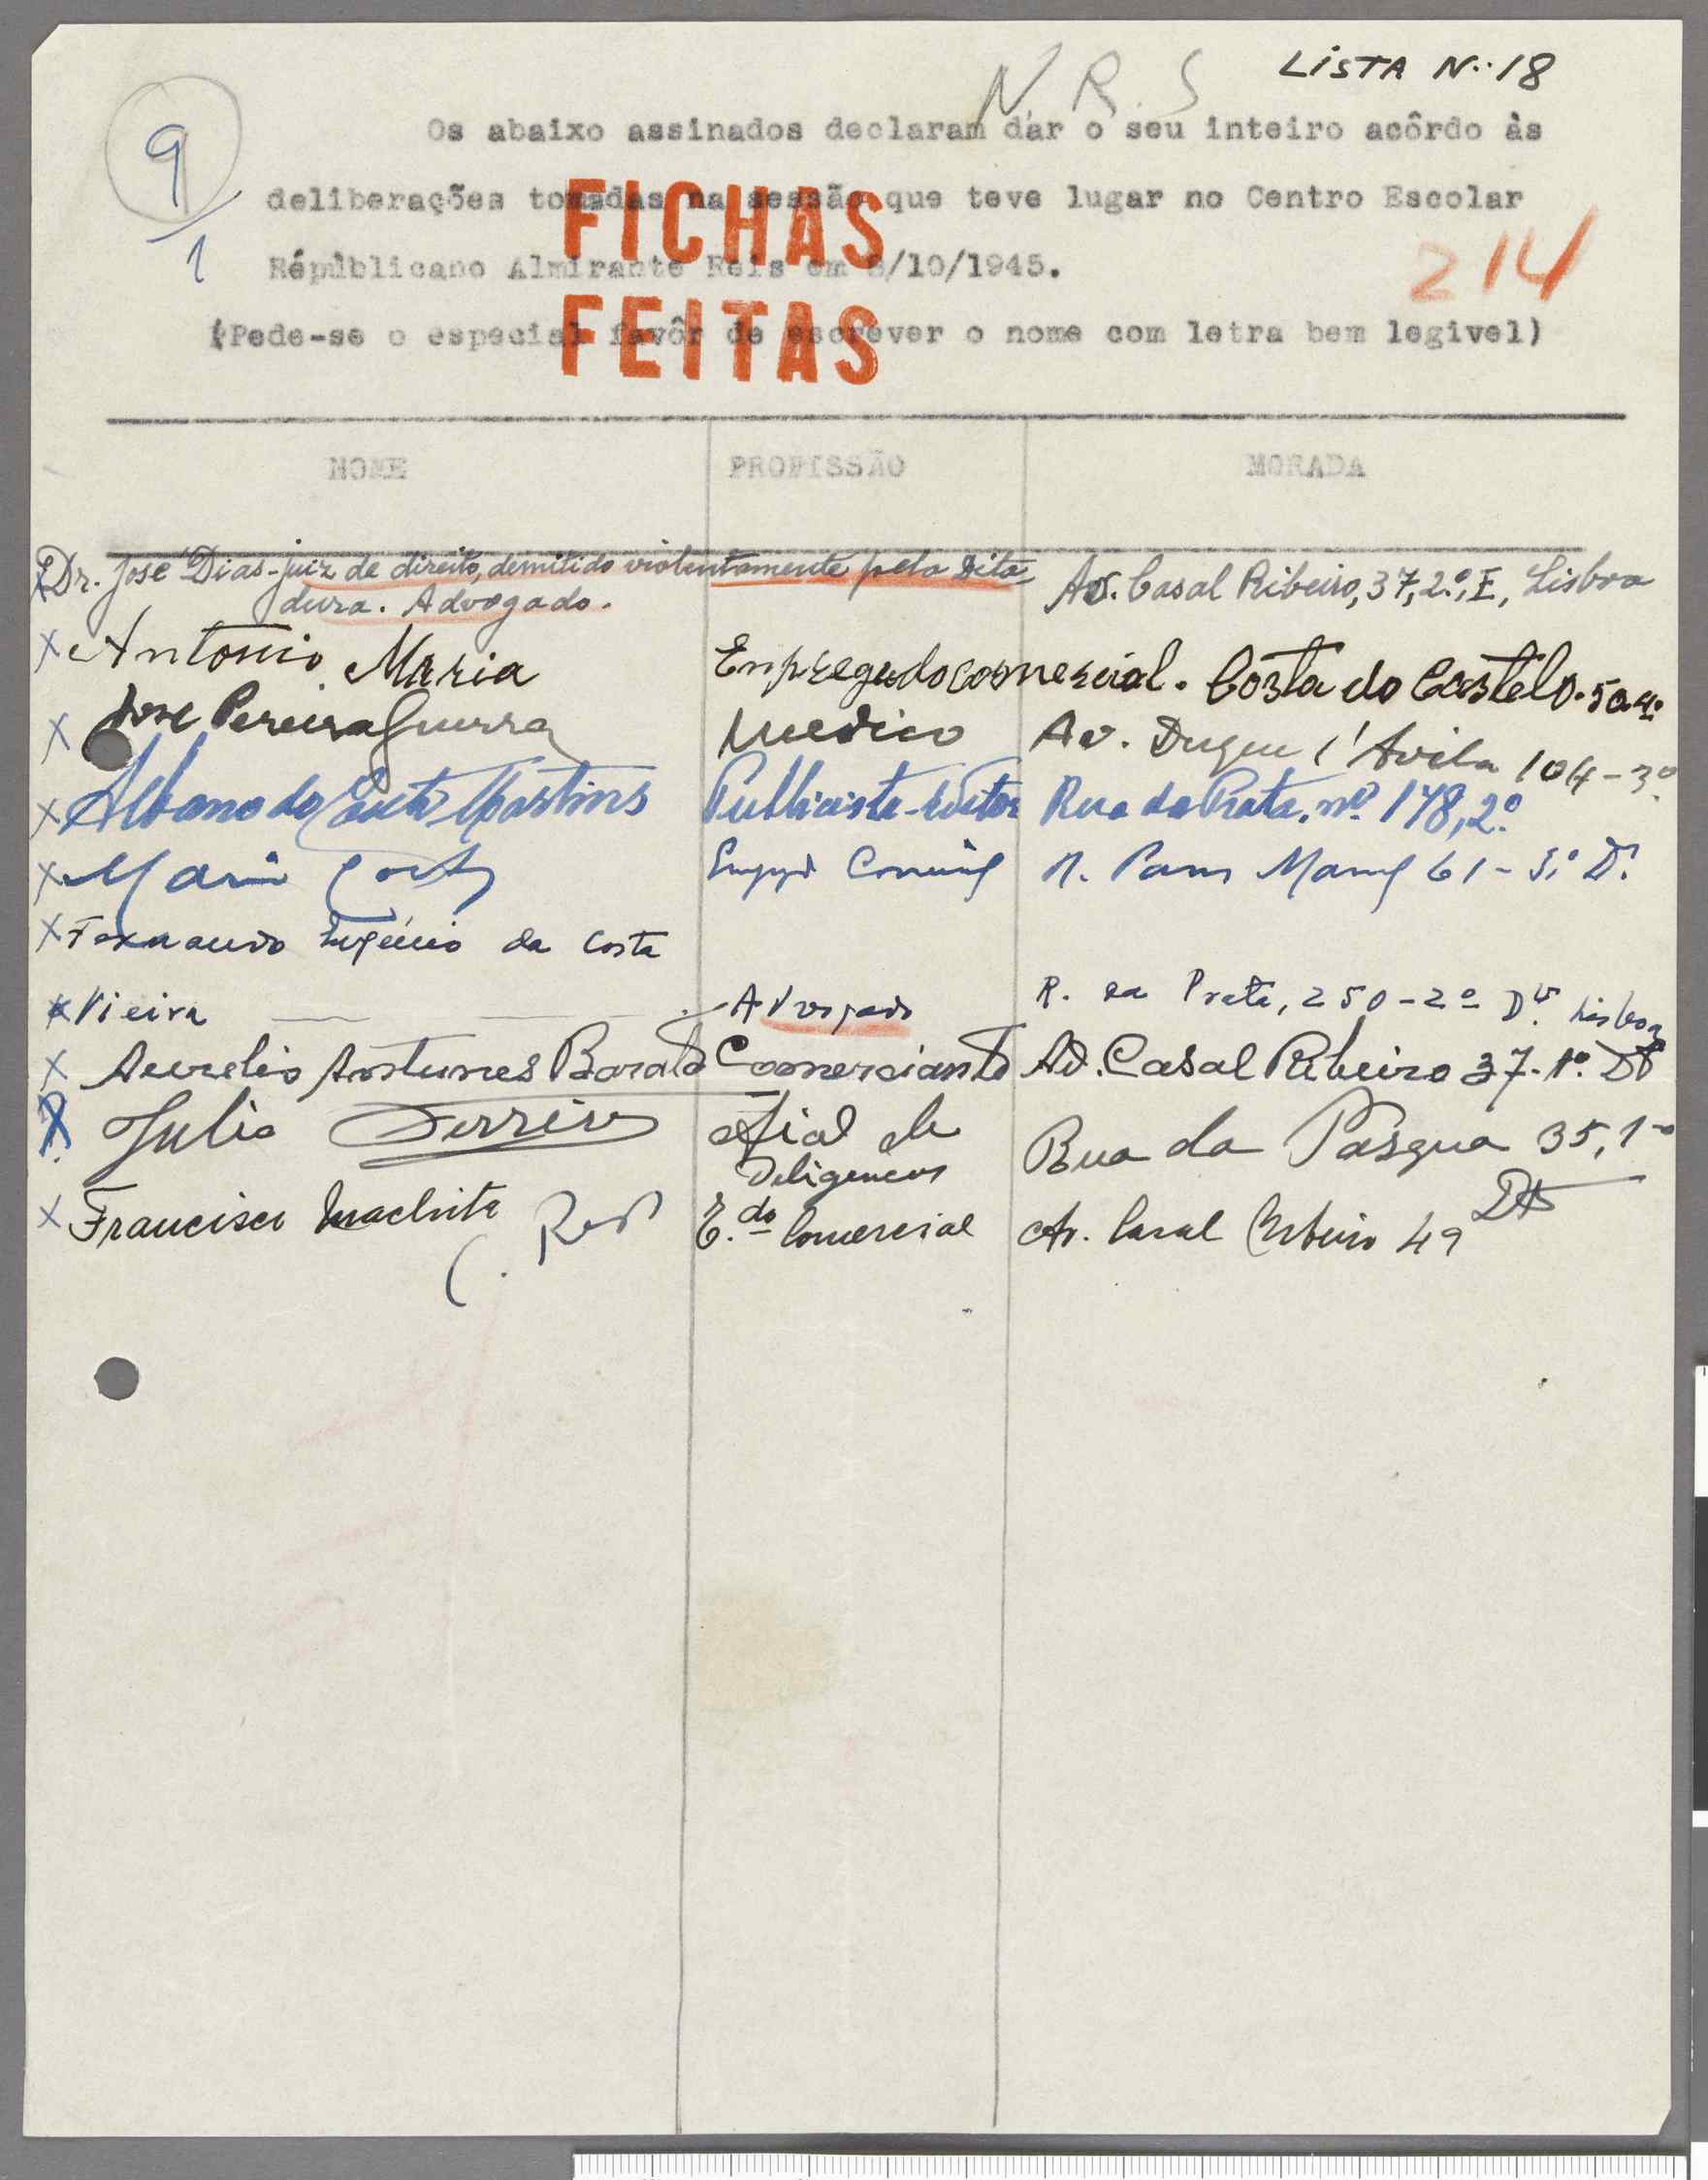 LISTA N.: 18
N. R. S
9/1
Os abaixo assinados declaram dar o seu inteiro acôrdo às
deliberações tomadas na sessão que teve lugar no Centro Escolar
Républicano Almirante Reis em 8/10/1945.
214
(Pede-se o especial favôr de escrever o nome com letra bem legivel)
FICHAS
FEITAS
NOME PROFISSÃO MORADA
Dr. José Dias - juiz de direito, demitido violentamente pela Dita
dura. Advogado. Av. Casal Ribeiro, 37, 2.º, E, Lisboa
X Antonio Maria Empregado comercial. Costa do Castelo. 50.4º
X José Pereira Guerra Medico Av. Duque d'Avila 104-3º
X Albano do Martins Publicista-Editor Rua da Prata, nº 178, 2º
X R. 61 - D.
X Fernando Eugénio da Costa
X Vieira Advogado R. da Prata, 250-2º Dto. Lisboa
X Aurelio Antunes Barata Comerciante Av. Casal Ribeiro 37-1º Dto
X Julio Ferreira Ofial de Rua da Pasgua 35, 1º
Deligencias Dto
X Francisco E.do Comercial Av. Casal Ribeiro 49